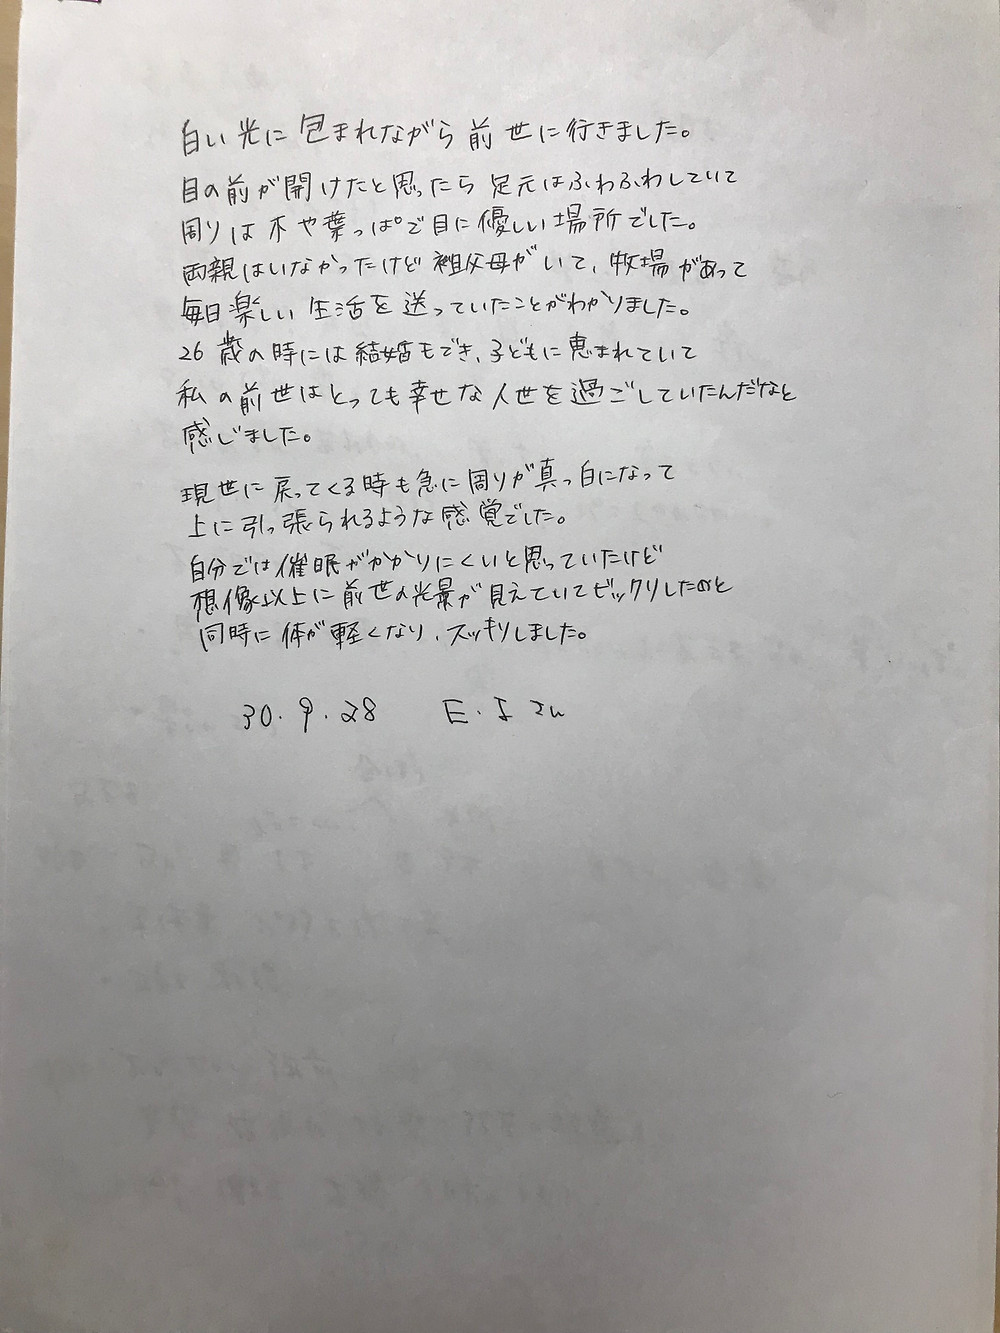 白い光に包まれながら前世に行きました。
目の前が開けたと思ったら足元はふわふわしていて
周りは木や葉っぱで目に優しい場所でした。
両親はいなかったけど祖父母がいて、牧場があって
毎日楽しい生活を送っていたことがわかりました。
26歳の時には結婚もでき、子どもに恵まれていて
私の前世はとっても幸せな人世を過ごしていたんだなと
感じました。
現世に戻ってくる時も急に周りが真っ白になって
上に引っ張られるような感覚でした。
自分では催眠がかかりにくいと思っていたけど
想像以上に前世の光景が見えていてビックリしたのと
同時に体が軽くなり、スッキリしました。
30.9.28 E.Iさん